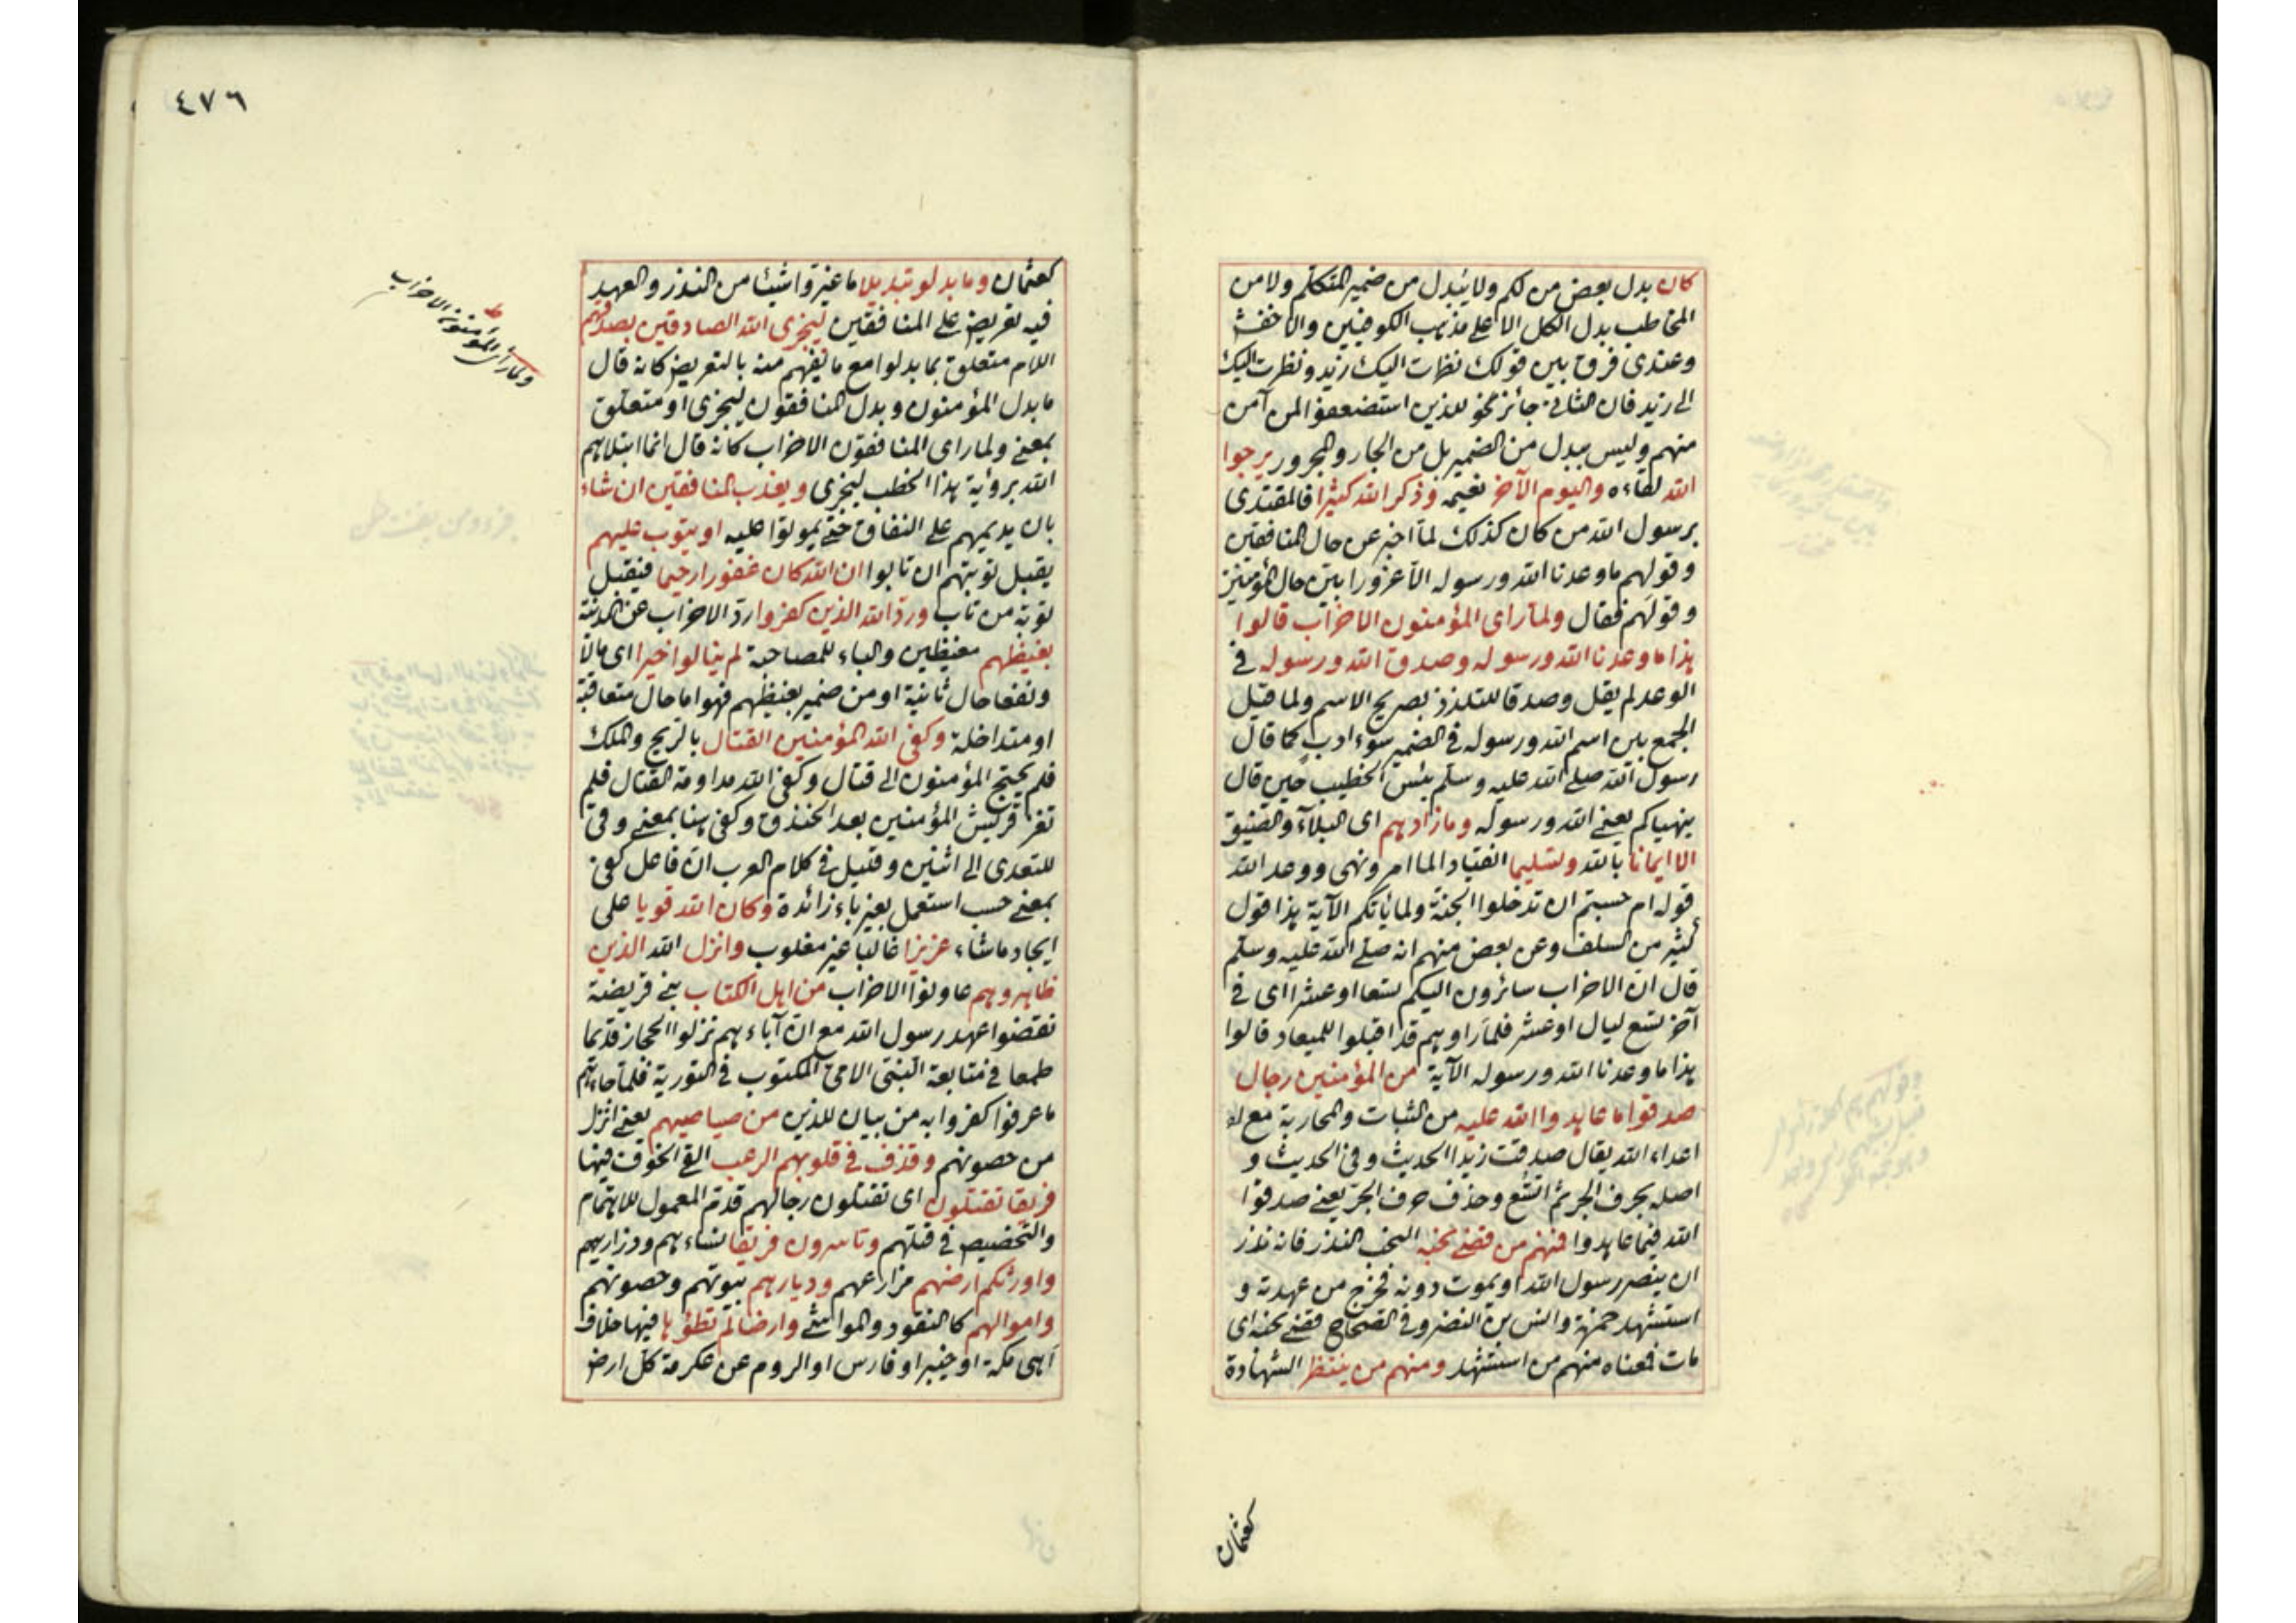 كان بدل بعض من لكم ولا يبدل من ضمير المتكلم ولا من
المخاطب بدل الكل الا على مذهب الكوفيين والاخفش
وعندى فرق بين قولك نظرت اليك زيد ونظرت اليك
الى زيد فان الثانى جائز نحو للذين استضعفوا لمن آمن
منهم وليس ببدل من الضمير بل من الجار والمجرور يرجوا
الله لقاءه واليوم الآخر نعيمه وذكر الله كثيرا فالمقتدى
برسول الله من كان كذلك لما اخبر عن حال المنافقين
وقولهم ما وعدنا الله ورسوله الا غرورا بين حال المؤمنين
وقولهم فقال ولما راى المؤمنون الاحزاب قالوا
هذا ما وعدنا الله ورسوله وصدق الله ورسوله فى
الوعد لم يقل وصدقا للتلذذ بصريح الاسم ولما قيل
الجمع بين اسم الله ورسوله فى الضمير سوء ادب كما قال
رسول الله صلى الله عليه وسلم بئس الخطيب حين قال
ينهياكم يعنى الله ورسوله وما زادهم اى البلاء والضيق
الا ايمانا بالله وتسليما انقيادا لما امر ونهى ووعد الله
قوله ام حسبتم ان تدخلوا الجنة ولما ياتكم الآية هذا قول
كثير من السلف وعن بعض منهم انه صلى الله عليه وسلم
قال ان الاحزاب سائرون اليكم تسعا او عشرا اى فى
آخر تسع ليال او عشر فلما راوهم قد اقبلوا للميعاد قالوا
هذا ما وعدنا الله ورسوله الآية من المؤمنين رجال
صدقوا ما عاهدوا الله عليه من الثبات والمحاربة مع
اعداء الله يقال صدقت زيدا الحديث وفى الحديث و
اصله بحرف الجر ثم اتسع وحذف حرف الجر يعنى صدقوا
الله فيما عاهدوا فمنهم من قضى نحبه النحب النذر فانه نذر
ان ينصر رسول الله او يموت دونه فخرج من عهدته و
استشهد حمزة وانس بن النضر وفى الصحاح قضى نحبه اى
مات فمعناه منهم من استشهد ومنهم من ينتظر الشهادة
كعثمان
٤٧٦
كعثمان وما بدلو تبديلا ما غيروا شيئا من النذر والعهد
فيه تعريض على المنافقين ليجزى الله الصادقين بصدقهم
اللام متعلق بما بدلوا مع ما يفهم منه بالتعريض كانه قال
ما بدل المؤمنون وبدل المنافقون ليجزى او متعلق
بمعنى ولما راى المنافقون الاحزاب كانه قال انما ابتلاهم
الله برؤية هذا الخطب ليجزى ويعذب المنافقين ان شاء
بان يديمهم على النفاق حتى يموتوا عليه او يتوب عليهم
يقبل توبتهم ان تابوا ان الله كان غفورا رحيما فيقبل
توبة من تاب ورد الله الذين كفروا رد الاحزاب عن المدينة
بغيظهم مغيظين والباء للمصاحبة لم ينالوا خيرا اى مالا
ونفعا حال ثانية او من ضمير بغيظهم فهو اما حال متعاقبة
او متداخلة وكفى الله المؤمنين القتال بالريح والملك
فلم يحتج المؤمنون الى قتال وكفى الله مداومة القتال فلم
تغز قريش المؤمنين بعد الخندق وكفى هنا بمعنى وقى
للتعدى الى اثنين وقيل فى كلام العرب ان فاعل كفى
بمعنى حسب استعمل بغير باء زائدة وكان الله قويا على
ايجاد ما شاء عزيزا غالبا غير مغلوب وانزل الله الذين
ظاهروهم عاونوا الاحزاب من اهل الكتاب بنى قريضة
نقضوا عهد رسول الله مع ان آباءهم نزلوا الحجاز قديما
طمعا فى متابعة النبى الامى المكتوب فى التورية فلما جاءهم
ما عرفوا كفروا به من بيان للذين من صياصيهم يعنى انزل
من حصونهم وقذف فى قلوبهم الرعب القى الخوف فيها
فريقا تقتلون اى تقتلون رجالهم قدم المعمول للاهتمام
والتخصيص فى قتلهم وتاسرون فريقا نساءهم وذراريهم
واورثكم ارضهم مزارعهم وديارهم بيوتهم وحصونهم
واموالهم كالنقود والمواشى وارضا لم تطؤها فيها خلاف
اهى مكة او خيبر او فارس او الروم عن عكرمة كل ارض
ولما رأى المؤمنون الاحزاب